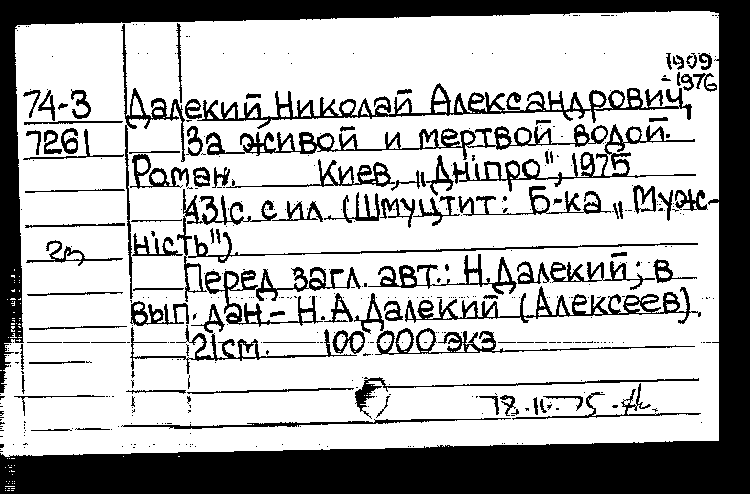 1909-
-1976
74-3 Далекий, Николай Александрович,
7261 За живой и мертвой водой.
Роман. Киев, „Дніпро", 1975
431с. с ил. (Шмуцтит: Б-ка „Муж-
ність").
Перед загл. авт.: Н.Далекий; в
вып. дан.- Н.А.Далекий (Алексеев).
21см. 100 000 экз.